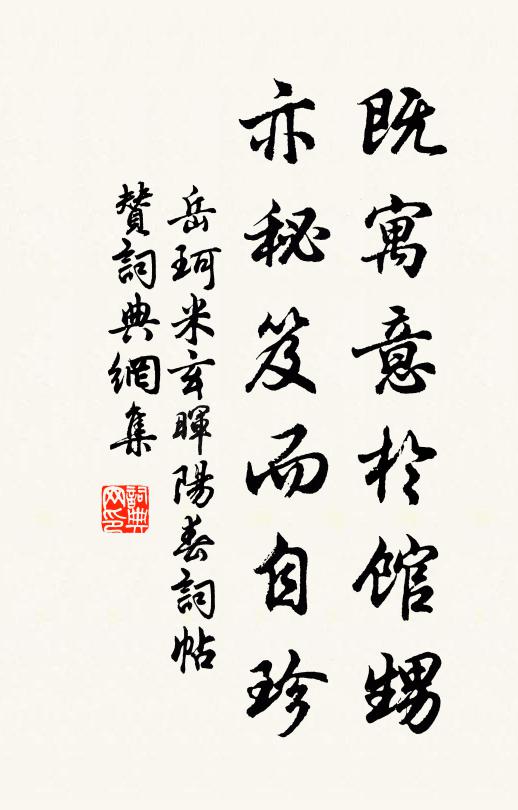 既寓意於館甥
亦秘笈而自珍
岳珂米玄暉陽春詞帖
贊詞典網集
詞典网印